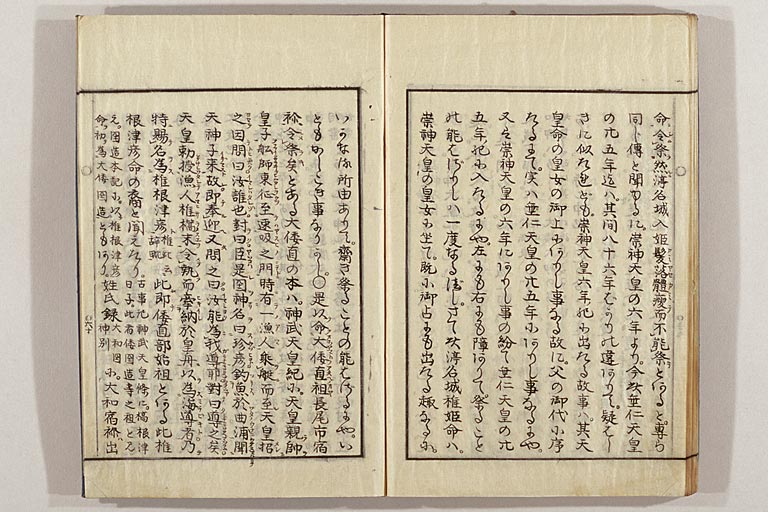 命令祭然渟名城入姫髪落體痩而不能祭とある と專ら
同じ傳と聞ゆるに崇神天皇の六年より 今の垂仁天皇
の廿五年迄ハ 其間八十六年 の違 ありて 疑はし
きに似たれども 崇神天皇六年 出たる故事ハ 其天
皇命の皇女の御上にありし事なる故に 父の御代に序
たるにて 実ハ垂仁天皇の廿五年にありし事なるにや
又は崇神天皇の六年にありし事の紛て垂仁天皇の廿
五年 に入たるにや 左にも右にも障ありて 祭ること
能 ありしハ 一度なるべし さて 渟名城稚姫命ハ
崇神天皇の皇女に坐て 既に御占にも出たる趣なるに
いかなる所由ありて 齋き祭ることの能 にや い
ともかしこき事なりかし ○是以命大倭直祖長尾市宿
祢令祭矣とある 大倭直の本ハ 神武天皇紀に 天皇親帥
皇子舩師東征至速吸之門時有一漁人乘艇而至天皇招
之因問曰汝誰也對曰臣是國神名曰珍彦釣魚於曲浦聞
天神子来故即奉迎又問之曰汝能為我導耶對曰導之矣
天皇勅授漁人椎檮末令執而牽納於皇舟以為海導者乃
特賜名為椎根津彦 椎此云辞毗 此即倭直部始祖とある 此椎
根津彦命の裔と聞えたり 古事記神武天皇條に 槁根津日子 此者倭國造等之祖とみ
え 國造本紀に 以椎根津彦命 初為大倭國造ともあり 姓氏録 大和國神別 に 大和宿祢出
六十